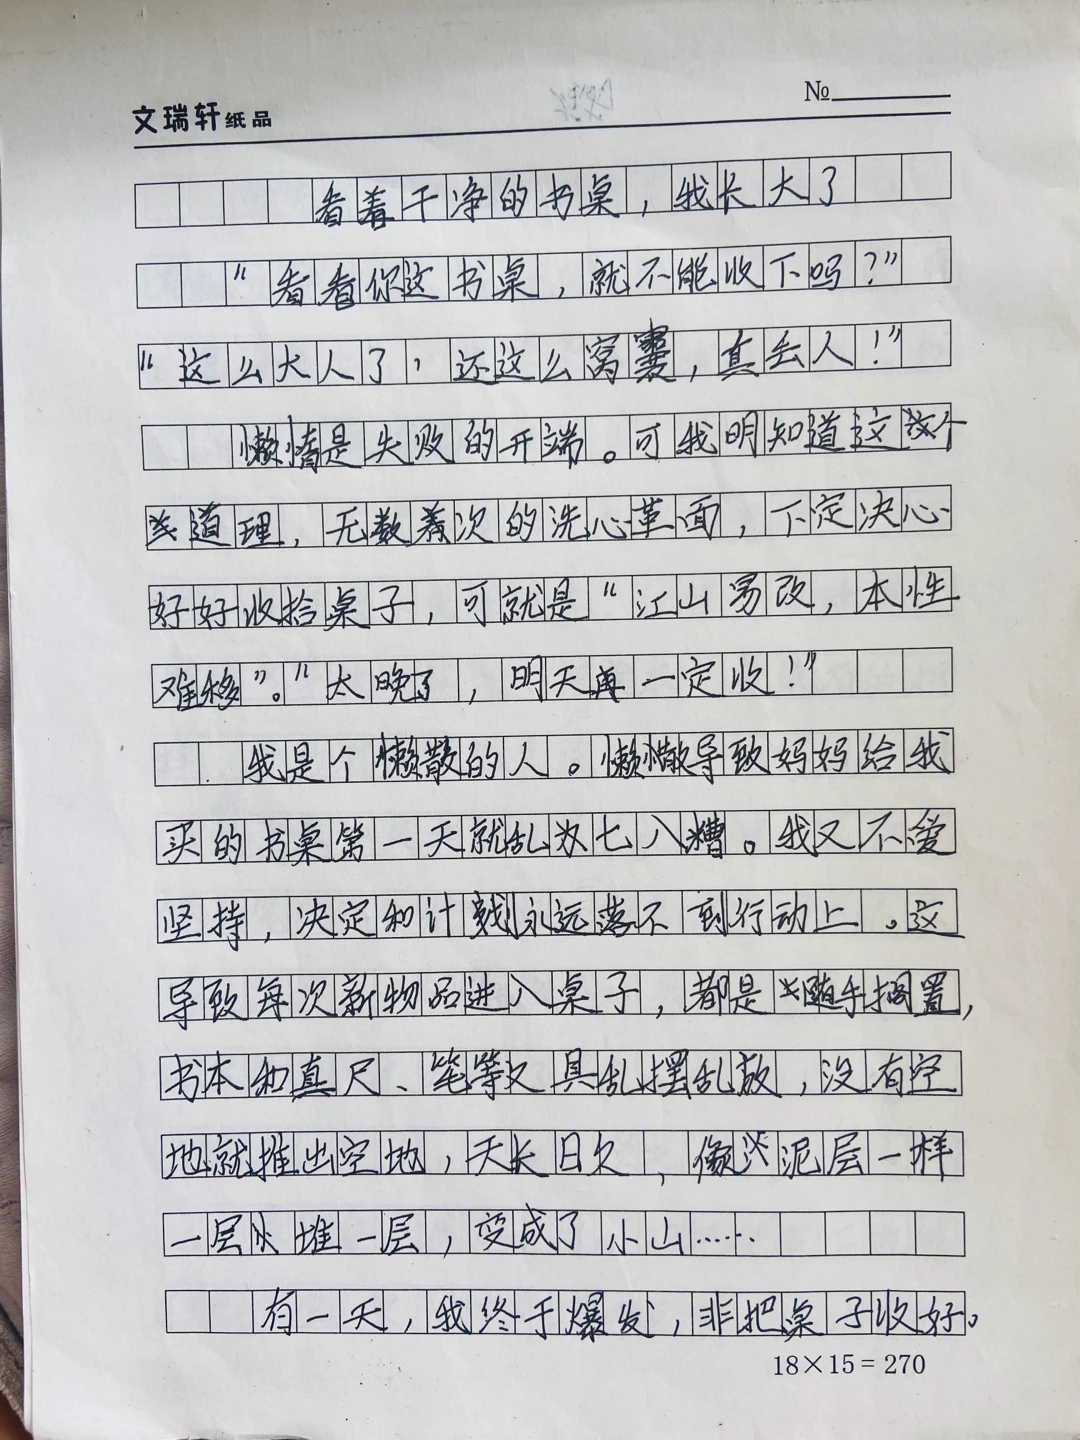 文瑞轩纸品
№
看着干净的书桌，我长大了
“看看你这书桌，就不能收下吗？”
“这么大人了，还这么窝囊，真丢人！”
懒惰是失败的开端。可我明知道这个
道理，无数次的洗心革面，下定决心
好好收拾桌子，可就是“江山易改，本性
难移”。“太晚了，明天再一定收！”
我是个懒散的人。懒散导致妈妈给我
买的书桌第一天就乱为七八糟。我又不爱
坚持，决定和计划永远落不到行动上。这
导致每次新物品进入桌子，都是随手搁置，
书本和真尺、笔等文具乱摆乱放，没有空
地就推出空地，天长日久，像泥层一样
一层堆一层，变成了小山……
有一天，我终于爆发，非把桌子收好。
18×15=270